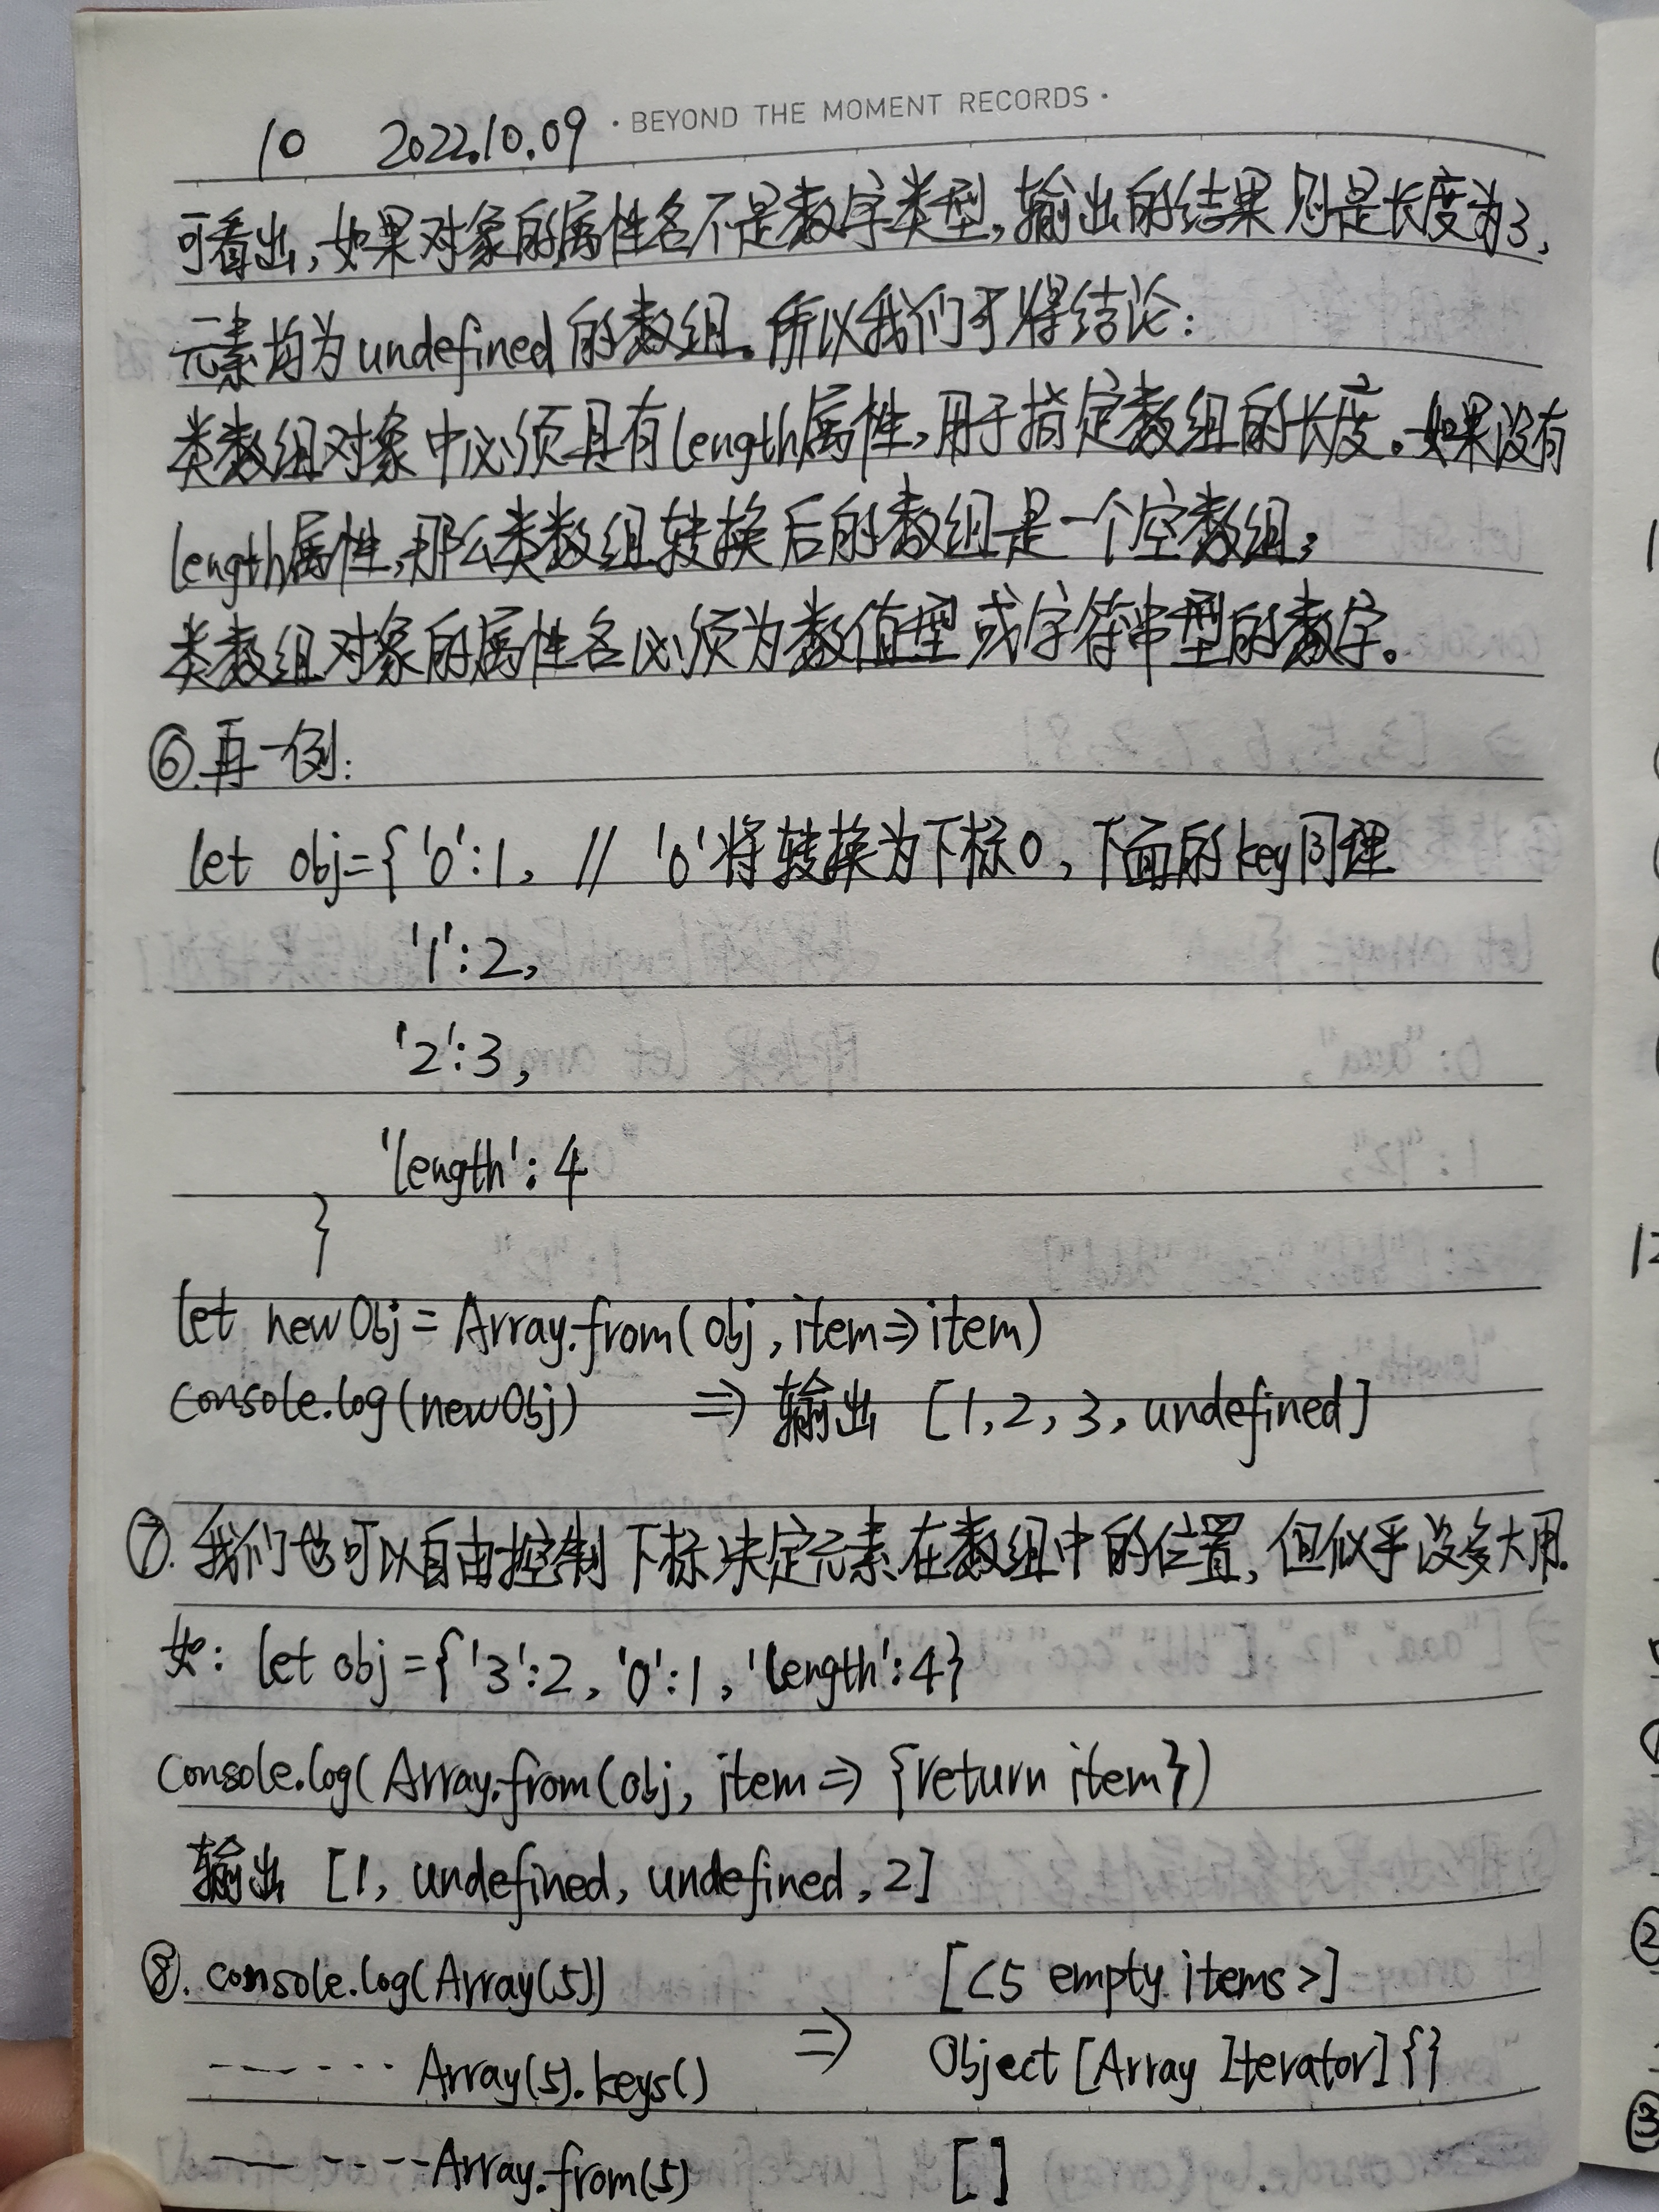 10 2022.10.09 · BEYOND THE MOMENT RECORDS ·
可看出,如果对象的属性名不是数字类型,输出的结果则是长度为3,
元素均为undefined的数组。所以我们可得结论:
类数组对象中必须具有length属性,用于指定数组的长度。如果没有
length属性,那么类数组转换后的数组是一个空数组;
类数组对象的属性名必须为数值型或字符串型的数字。
⑥.再一例:
let obj={'0':1, // '0'将转换为下标0,下面的key同理
'1':2,
'2':3,
'length':4
}
let newObj=Array.from(obj,item=>item)
console.log(newObj) => 输出 [1,2,3,undefined]
⑦.我们也可以自由控制下标决定元素在数组中的位置,但似乎没多大用.
如: let obj={'3':2,'0':1,'length':4}
console.log(Array.from(obj, item=> {return item})
输出 [1, undefined, undefined, 2]
⑧. console.log(Array(5)) [<5 empty items>]
—-—---- Array(5).keys() => Object [Array Iterator] {}
—-—---- Array.from(5) []
1
12
②
③